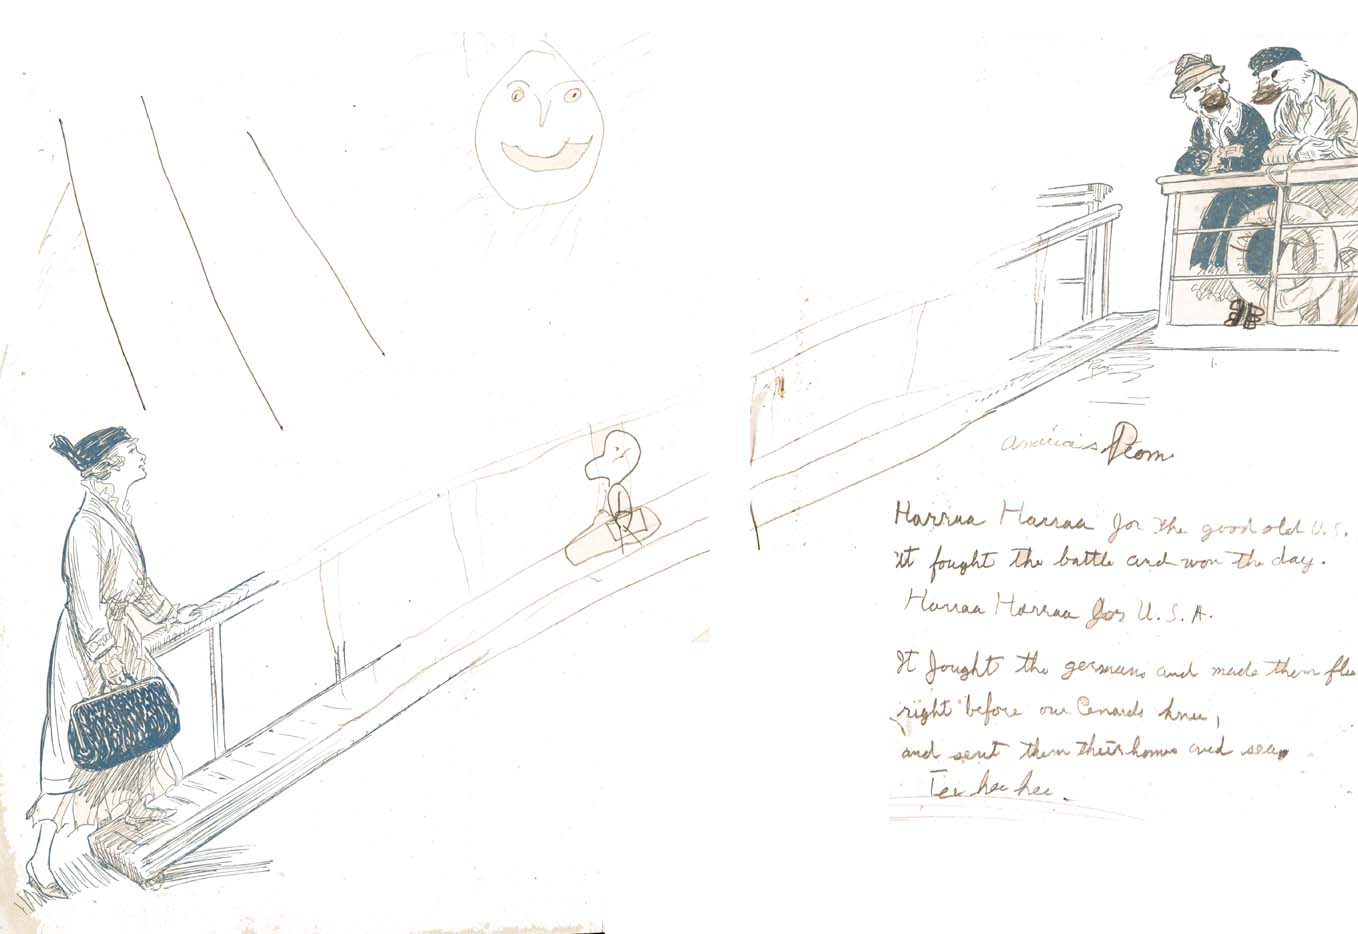 America's Poem
Harraa Harraa for the good old U.S.
it fought the battle and won the day.
Harraa Harraa for U.S.A.
It fought the germans and made them flee
right before our Canards knee,
and sent them their home and sea
Tee hee hee.